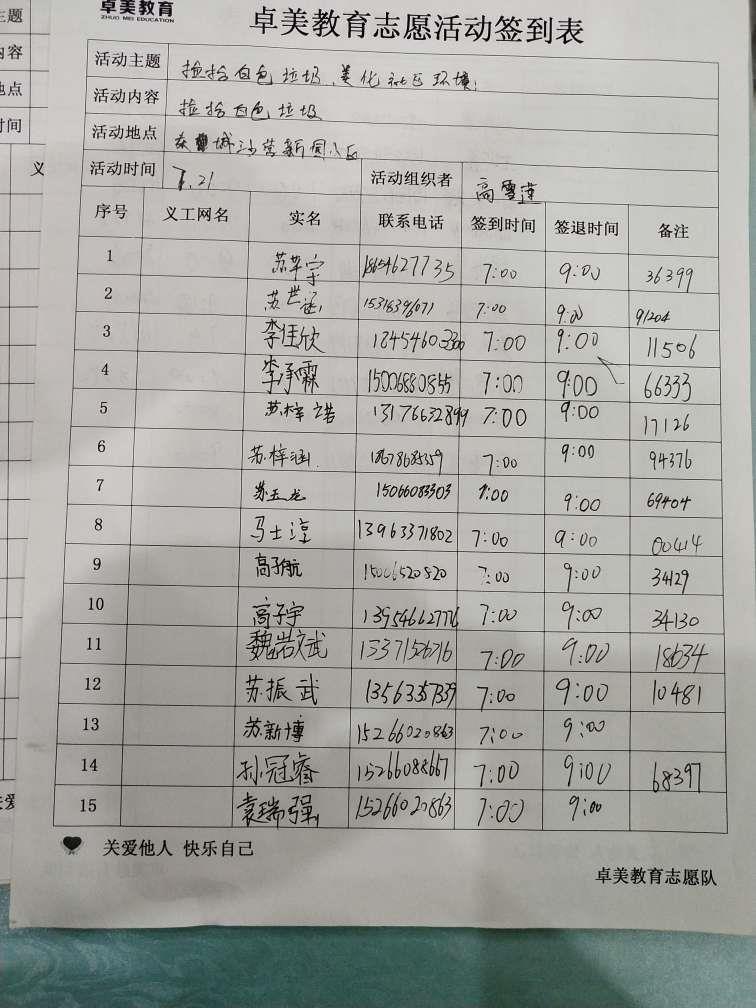 主题
内容
地点
时间
义
卓美教育
ZHUO MEI EDUCATION
卓美教育志愿活动签到表
活动主题 捡拾白色垃圾、美化社区环境;
活动内容 捡拾白色垃圾
活动地点 城沙营新闻小区
活动时间 7.21 活动组织者 高雪莲
序号 义工网名 实名 联系电话 签到时间 签退时间 备注
1 苏苹宇 18654627735 7:00 9:00 36399
2 苏芒涵 15318396071 7:00 9:00 91204
3 李佳欣 7:00 9:00 11506
4 李承霖 15006880855 7:00 9:00 66333
5 苏梓诺 13176632899 7:00 9:00 17126
6 苏梓涵 18678685359 7:00 9:00 94376
7 苏五龙 15066083303 7:00 9:00 69404
8 马士淳 13963371802 7:00 9:00 00414
9 高子航 15006520520 7:00 9:00 34129
10 高子宇 139546627776 7:00 9:00 34130
11 魏岩文武 7:00 9:00 18634
12 苏振武 7:00 9:00 10481
13 苏新博 15266020863 7:00 9:00
14 孙冠睿 15266088667 7:00 9:00 68397
15 袁瑞强 15266020863 7:00 9:00
关爱他人 快乐自己
卓美教育志愿队